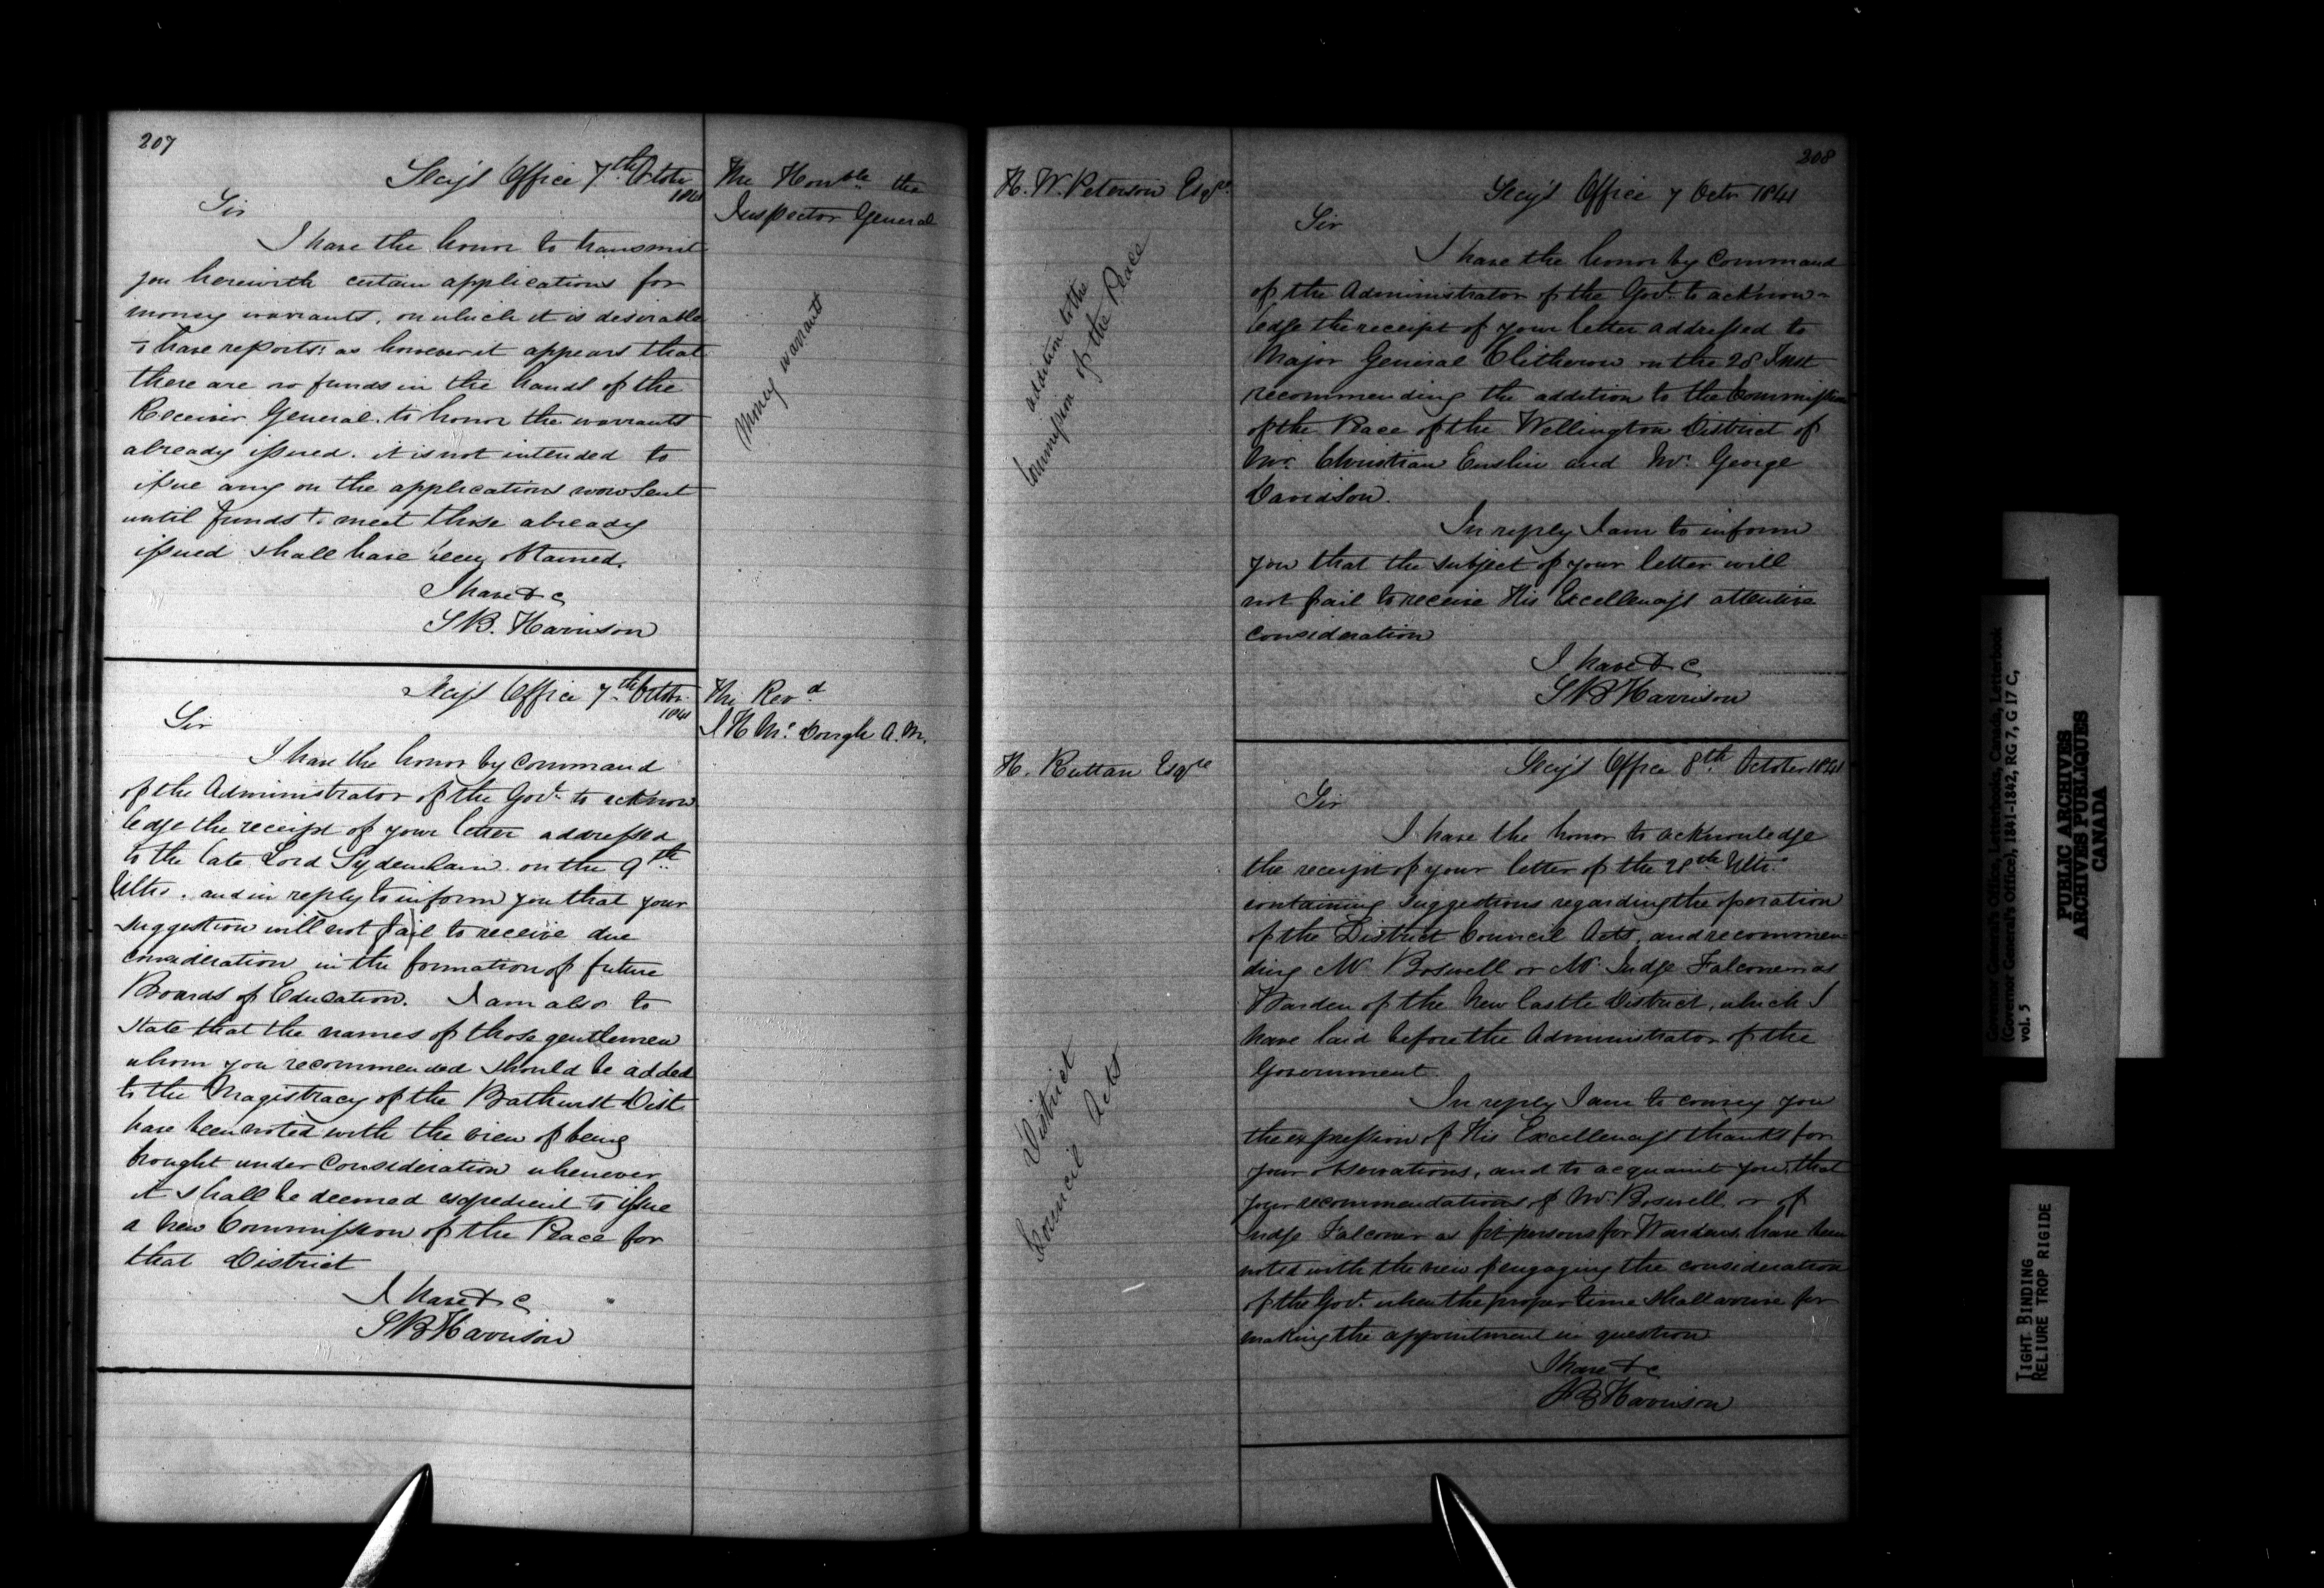 207
The Honble the
Inspector General
Money warrants
Secy's Office 7th Octobr
1841
Sir
I have the honor to transmit
you herewith certain applications for
money warrants, on which it is desirable
to have reports: as however it appears that
there are no funds in the hands of the
Receiver General to honor the warrants
already issued. it is not intended to
issue any on the applications now sent
until funds to meet those already
issued shall have been obtained.
I have &c
S B. Harrison
The Revd
Secy's Office 7th Octobr
1841
Sir
I have the honor by Command
of the Administrator of the Govt to acknow
ledge the receipt of your letter addressed
to the late Lord Sydenham on the 9th
Ulto. and in reply to inform you that your
suggestion will not fail to receive due
consideration in the formation of future
Boards of Education. I am also to
state that the names of those gentlemen
whom you recommended should be added
to the Magistracy of the Bathurst Dist.
have been noted with the view of being
brought under Consideration whenever
it shall be deemed expedient to issue
a new Commission of the Peace for
that District
I have &c
S B Harrison
208
H. W. Peterson Esqre
addition to the
Commission of the Peace
Secy's Office 7 Octr 1841
Sir
I have the honor by Command
of the Administrator of the Govt. to acknow-
ledge the receipt of your letter addressed to
Major General Clitherow on the 28 Inst
recommending the addition to the Commission
of the Peace of the Wellington District of
Mr. Christian Enslin and Mr. George
Davidson.
In reply I am to inform
you that the subject of your letter will
not fail to receive His Excellency's attentive
consideration
I have &c
S B Harrison
H. Ruttan Esqre
District
Council Acts
Secy's Office 8th October 1841
Sir
I have the honor to acknowledge
the receipt of your letter of the 28th Ulto.
containing suggestions regarding the operation
of the District Council Acts, and recommen-
ding Mr. Boswell or Mr. Judge Falconer as
Warden of the New Castle District, which I
have laid before the Administrator of the
Government.
In reply I am to convey you
the expression of His Excellency's thanks for
your observations, and to acquaint you, that
your recommendations of Mr. Boswell or of
Judge Falconer as fit persons for Wardens have been
noted with the view of engaging the consideration
of the Govt. when the proper time shall arrive for
making the appointment in question
I have &c
S B Harrison
Governor General's Office, Letterbooks, Canada, Letterbook
(Governor General's Office), 1841-1842, RG 7, G 17 C,
vol. 5
PUBLIC ARCHIVES
ARCHIVES PUBLIQUES
CANADA
TIGHT BINDING
RELIURE TROP RIGIDE